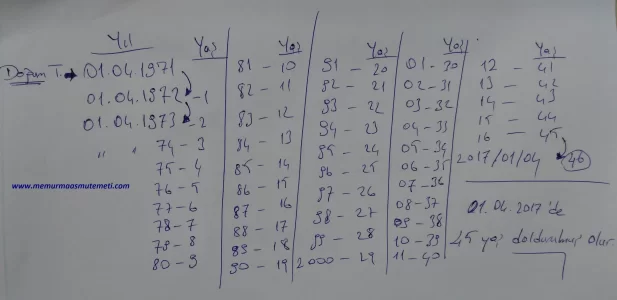 Yıl Yaş
Doğum T. → 01.04.1971
01.04.1972 - 1
01.04.1973 - 2
" " 74 - 3
75 - 4
76 - 5
77 - 6
78 - 7
79 - 8
80 - 9
www.memurmaasmutemeti.com
Yaş
81 - 10
82 - 11
83 - 12
84 - 13
85 - 14
86 - 15
87 - 16
88 - 17
89 - 18
90 - 19
Yaş
91 - 20
92 - 21
93 - 22
94 - 23
95 - 24
96 - 25
97 - 26
98 - 27
99 - 28
2000 - 29
Yaş
01 - 30
02 - 31
03 - 32
04 - 33
05 - 34
06 - 35
07 - 36
08 - 37
09 - 38
10 - 39
11 - 40
Yaş
12 - 41
13 - 42
14 - 43
15 - 44
16 - 45
2017/01/04 46
01.04.2017'de
45 yaş doldurulmuş olur.